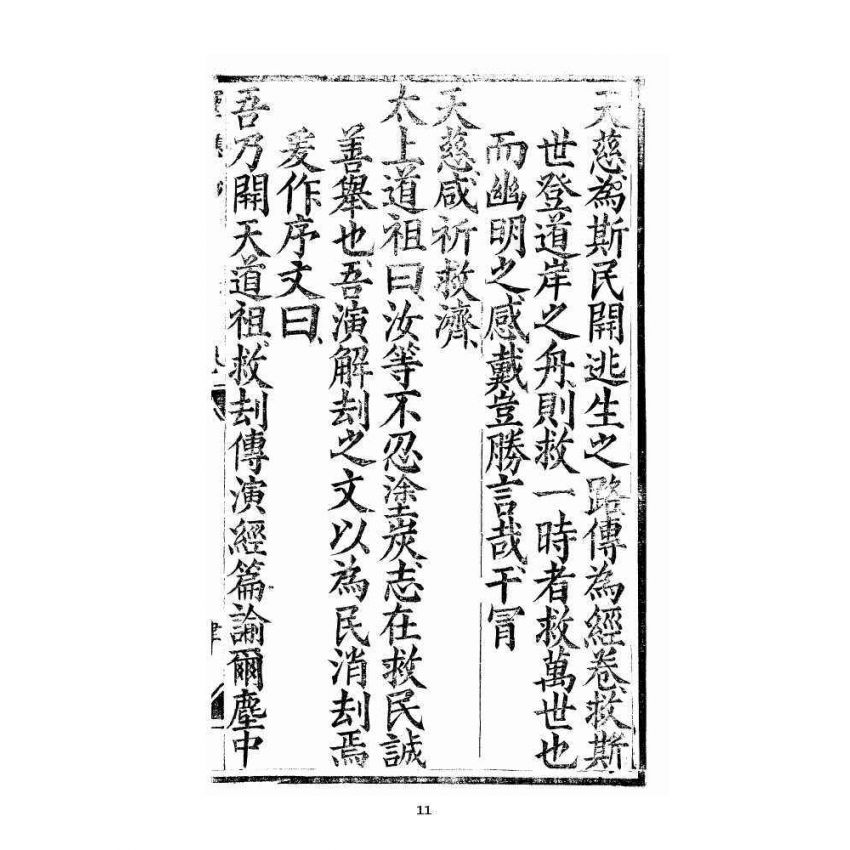 天慈為斯民開逃生之路傳為經卷救斯
世登道岸之舟則救一時者救萬世也
而幽明之感戴豈勝言哉干冒
天慈咸祈救濟
太上道祖曰汝等不忍塗炭志在救民誠
善舉也吾演解刦之文以為民消刦焉
爰作序文曰
吾乃開天道祖救刦傳演經篇諭爾塵中
11